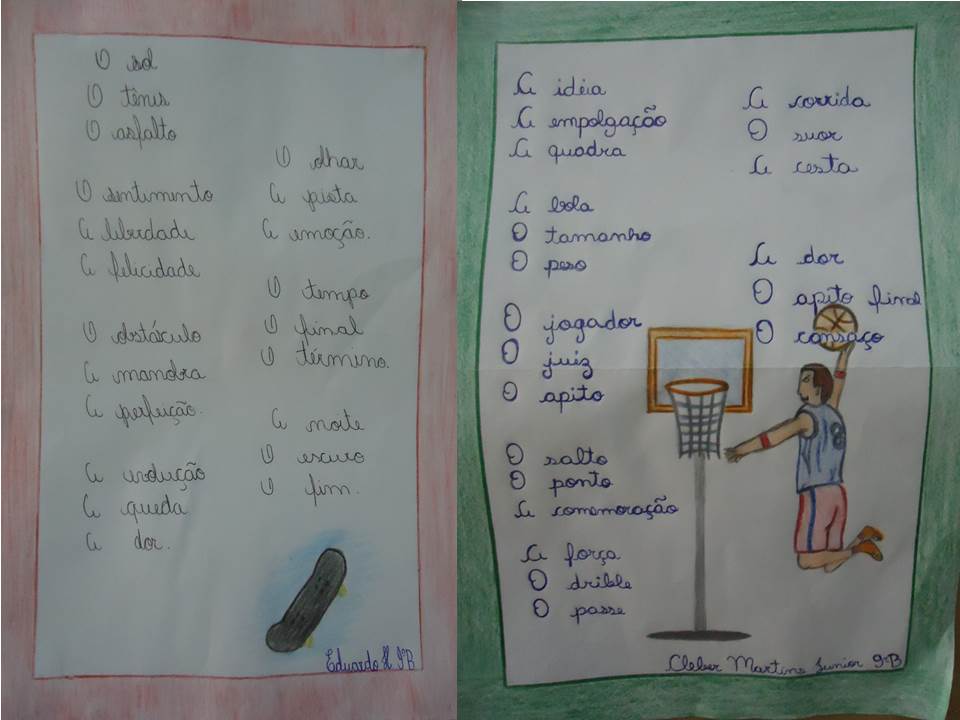 O sol
O tênis
O asfalto
O sentimento
A liberdade
A felicidade
O obstáculo
A manobra
A perfeição.
A evolução
A queda
A dor.
O olhar
A pista
A emoção.
O tempo
O final
O término.
A noite
O escuro
O fim.
Eduardo H 9ºB
A idéia
A empolgação
A quadra
A bola
O tamanho
O peso
O jogador
O juíz
O apito
O salto
O ponto
A comemoração
A força
O drible
O passe
A corrida
O suor
A cesta
A dor
O apito final
O cansaço
8
Cleber Martins Junior 9ºB